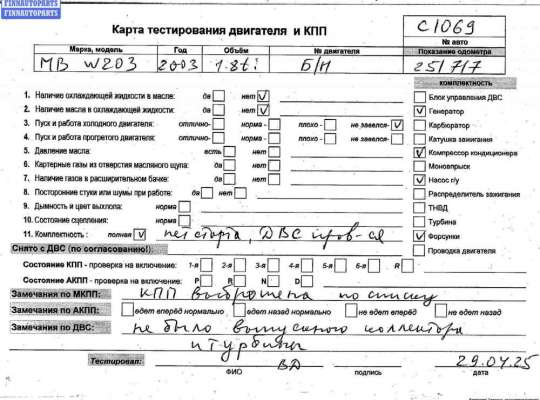 FINNAUTOPARTS
FINNAUTOPARTS
Карта тестирования двигателя и КПП
C1069
№ авто
Марка, модель Год Объём № двигателя Показание одометра
MB W203 2003 1.8ti Б/Н 251717
комплектность
1. Наличие охлаждающей жидкости в масле: да нет V
2. Наличие масла в охлаждающей жидкости: да нет V
3. Пуск и работа холодного двигателя: отлично- норма - плохо - не завелся- V
4. Пуск и работа прогретого двигателя: отлично- норма - плохо - не завелся-
5. Давление масла: есть нет
6. Картерные газы из отверстия масляного щупа: да нет
7. Наличие газов в расширительном бачке: да нет
8. Посторонние стуки или шумы при работе: да нет
9. Дымность и цвет выхлопа: норма
10. Состояние сцепления: норма
11. Комплектность : полная V нет старта, ДВС пров-ся
Блок управления ДВС
V Генератор
Карбюратор
Катушка зажигания
V Компрессор кондиционера
Моновпрыск
V Насос г/у
Распределитель зажигания
ТНВД
Турбина
V Форсунки
Проводка двигателя
Снято с ДВС (по согласованию!):
Состояние КПП - проверка на включение: 1-я 2-я 3-я 4-я 5-я 6-я R
Состояние АКПП - проверка на включение: P R N D
Замечания по МКПП: КПП выброшена по списку
Замечания по АКПП: едет вперёд нормально едет назад нормально не едет вперёд не едет назад
Замечания по ДВС: не было выпускного коллектора
и турбины
Тестировал: ВД 29.04.25
ФИО подпись дата